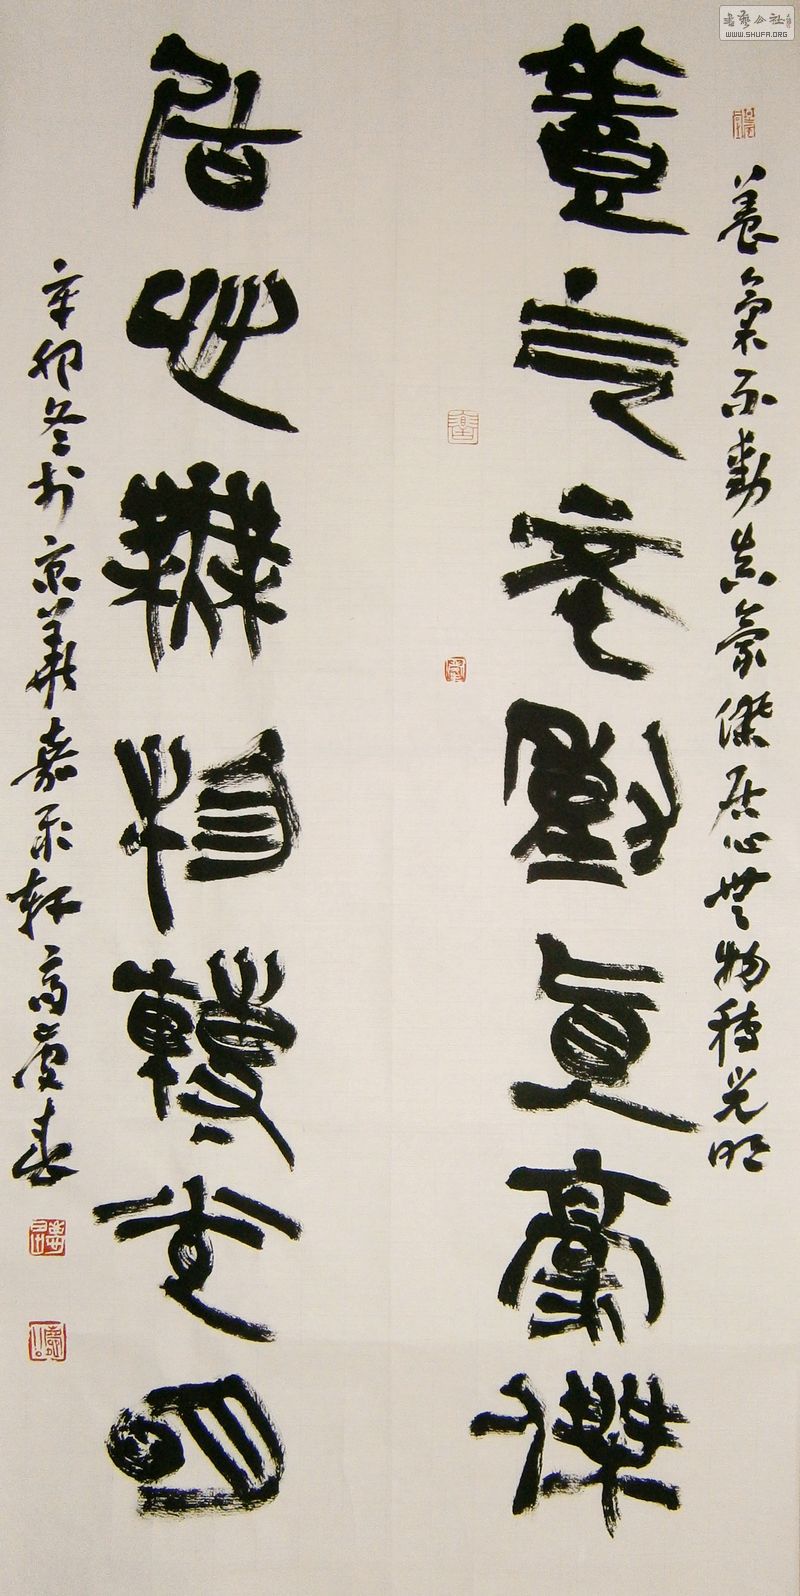 養氣不動真豪傑居心無物轉光明
養气不動真豪傑
居心無物轉光明
辛卯冬於京華嘉軒高慶春
書藝公社
WWW.SHUFA.ORG